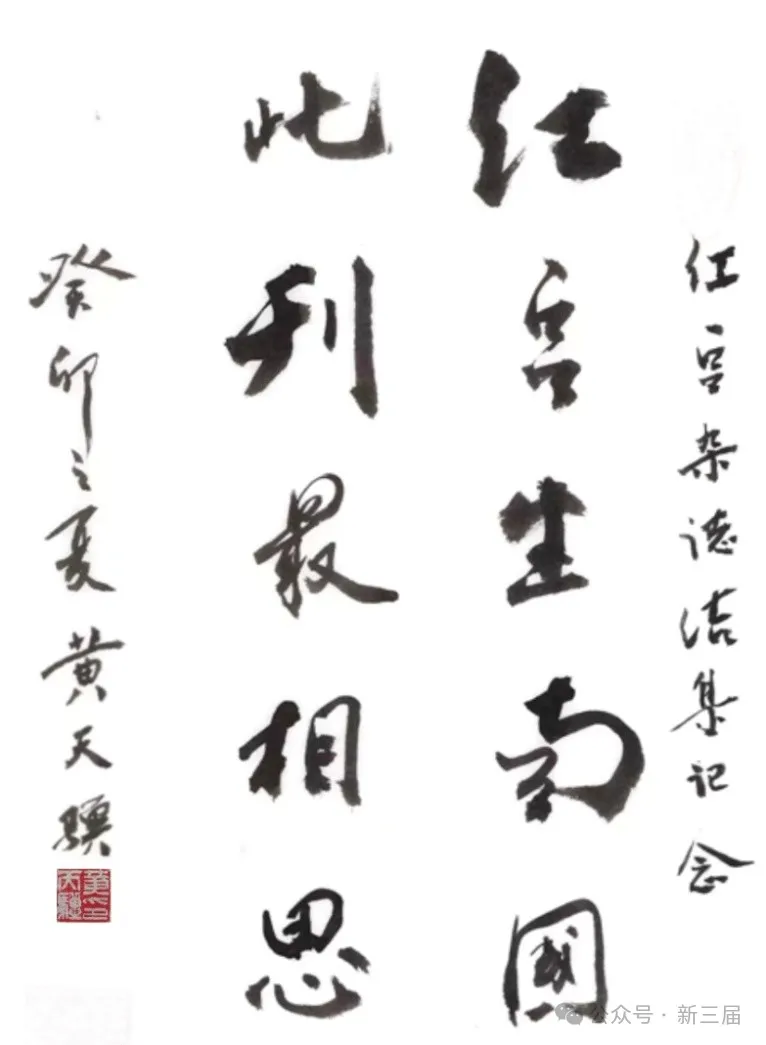 红豆杂誌结集记念
红豆生南國
此刊最相思
癸卯之夏 黄天骥
公众号·新三届